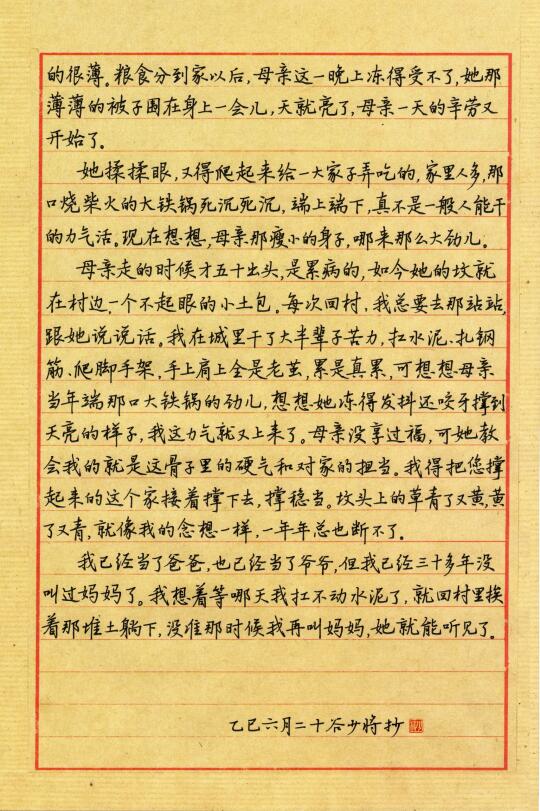 的很薄。粮食分到家以后，母亲这一晚上冻得受不了，她那
薄薄的被子围在身上一会儿，天就亮了，母亲一天的辛劳又
开始了。
她揉揉眼，又得爬起来给一大家子弄吃的，家里人多，那
口烧柴火的大铁锅死沉死沉，端上端下，真不是一般人能干
的力气活。现在想想，母亲那瘦小的身子，哪来那么大劲儿。
母亲走的时候才五十出头，是累病的，如今她的坟就
在村边，一个不起眼的小土包。每次回村，我总要去那站站，
跟她说说话。我在城里干了大半辈子苦力，扛水泥、扎钢
筋、爬脚手架，手上肩上全是老茧，累是真累，可想想母亲
当年端那口大铁锅的劲儿，想想她冻得发抖还咬牙撑到
天亮的样子，我这力气就又上来了。母亲没享过福，可她教
会我的就是这骨子里的硬气和对家的担当。我得把您撑
起来的这个家接着撑下去，撑稳当。坟头上的草青了又黄，黄
了又青，就像我的念想一样，一年年总也断不了。
我已经当了爸爸，也已经当了爷爷，但我已经三十多年没
叫过妈妈了。我想着等哪天我扛不动水泥了，就回村里挨
着那堆土躺下，没准那时候我再叫妈妈，她就能听见了。
乙巳六月二十谷少将抄